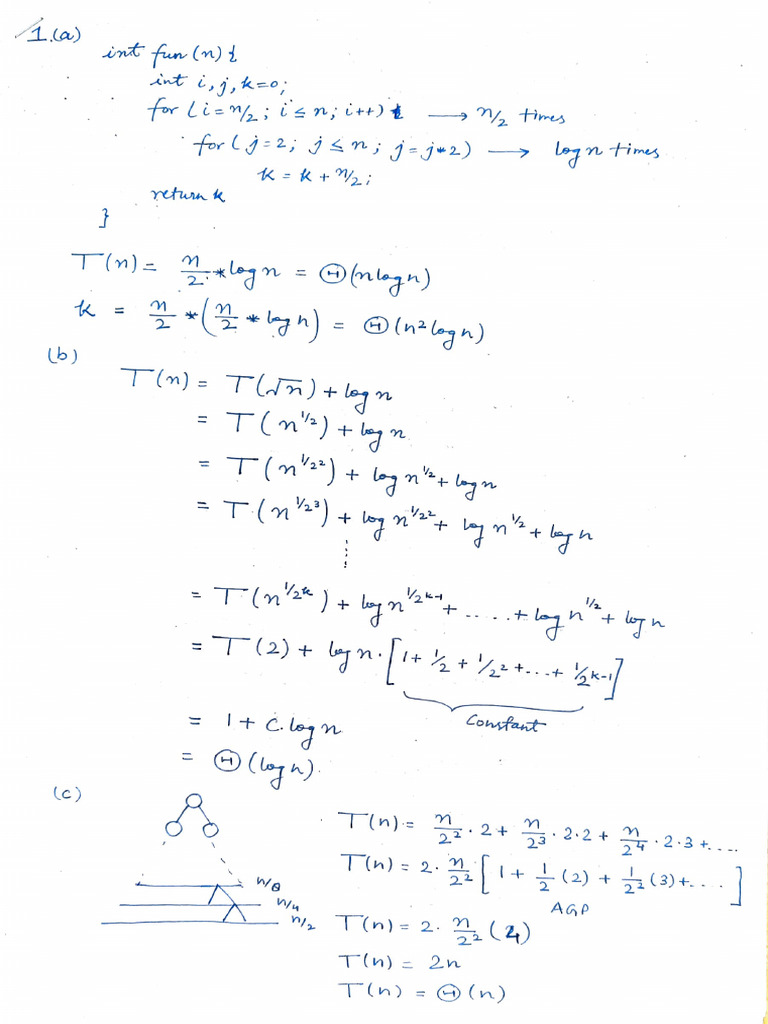 1.(a)
int fun (n) {
int i, j, k=0;
for (i = n/2; i ≤ n; i++) { → n/2 times
for (j=2; j ≤ n; j=j*2) → log n times
k = k + n/2;
return k
}
T(n) = n/2 * log n = Θ(n log n)
k = n/2 * (n/2 * log n) = Θ(n² log n)
(b)
T(n) = T(√n) + log n
= T(n^1/2) + log n
= T(n^1/2²) + log n^1/2 + log n
= T(n^1/2³) + log n^1/2² + log n^1/2 + log n
⋮
= T(n^1/2^k) + log n^1/2^k-1 + ..... + log n^1/2 + log n
= T(2) + log n · [1 + 1/2 + 1/2² + ... + 1/2^k-1]
Constant
= 1 + c. log n
= Θ(log n).
(c)
n/8
n/4
n/2
T(n) = n/2² · 2 + n/2³ · 2·2 + n/2⁴ · 2·3 + ....
T(n) = 2 · n/2² [1 + 1/2 (2) + 1/2² (3) + ....]
AGP
T(n) = 2 · n/2² (4)
T(n) = 2n
T(n) = Θ(n)